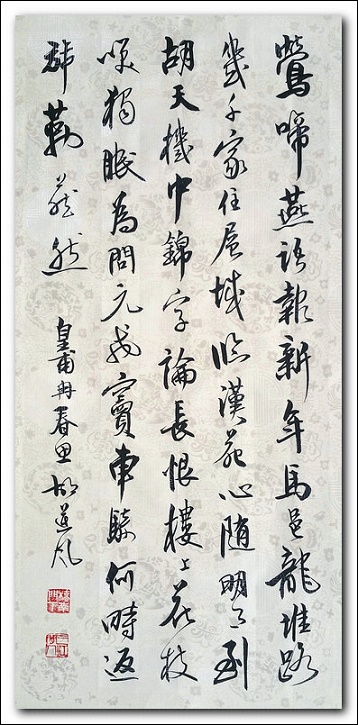 鶯啼燕語報新年馬邑龍堆路
幾千家住層城臨漢苑心随明月到
胡天機中錦字論長恨樓上花枝
咲獨眠為問元戎竇車騎何時返
旆勒燕然
皇甫冉春思